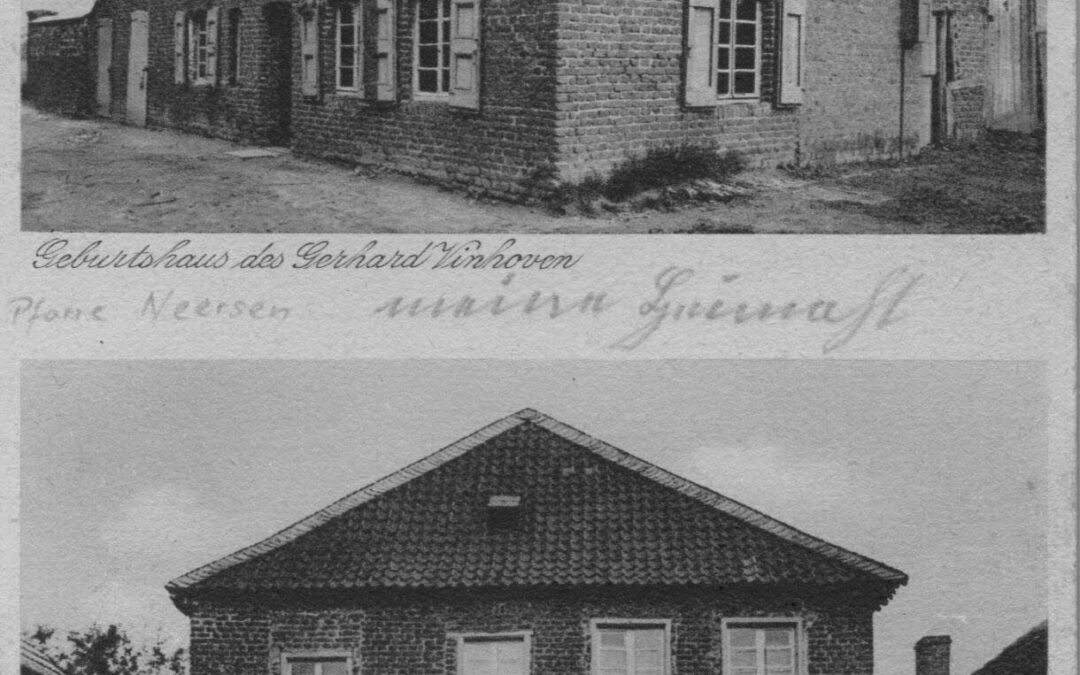 Geburtshaus des Gerhard Vinhoven
Pfarre Neersen. meine Heimaht!